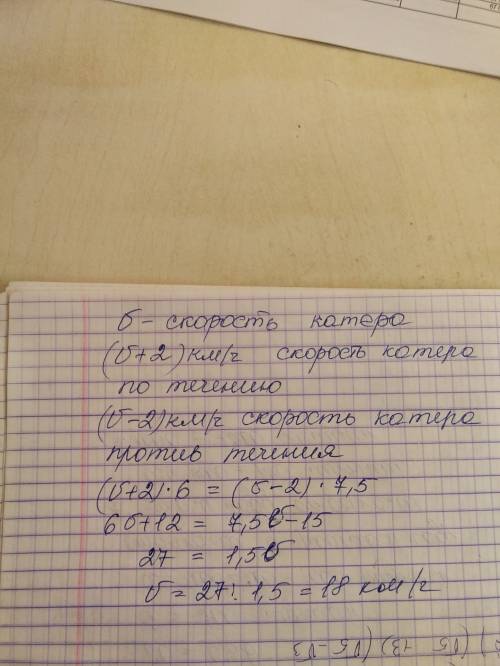 υ - скорость катера
(υ+2) км/ч скорость катера
по течению
(υ-2) км/ч скорость катера
против течения
(υ+2)·6 = (υ-2)·7,5
6υ+12 = 7,5υ-15
27 = 1,5υ
υ = 27 : 1,5 = 18 ком/ч